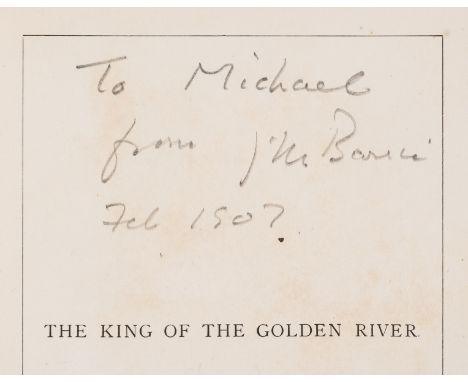 To Michael
from J M Barrie
Feb 1907
THE KING OF THE GOLDEN RIVER.